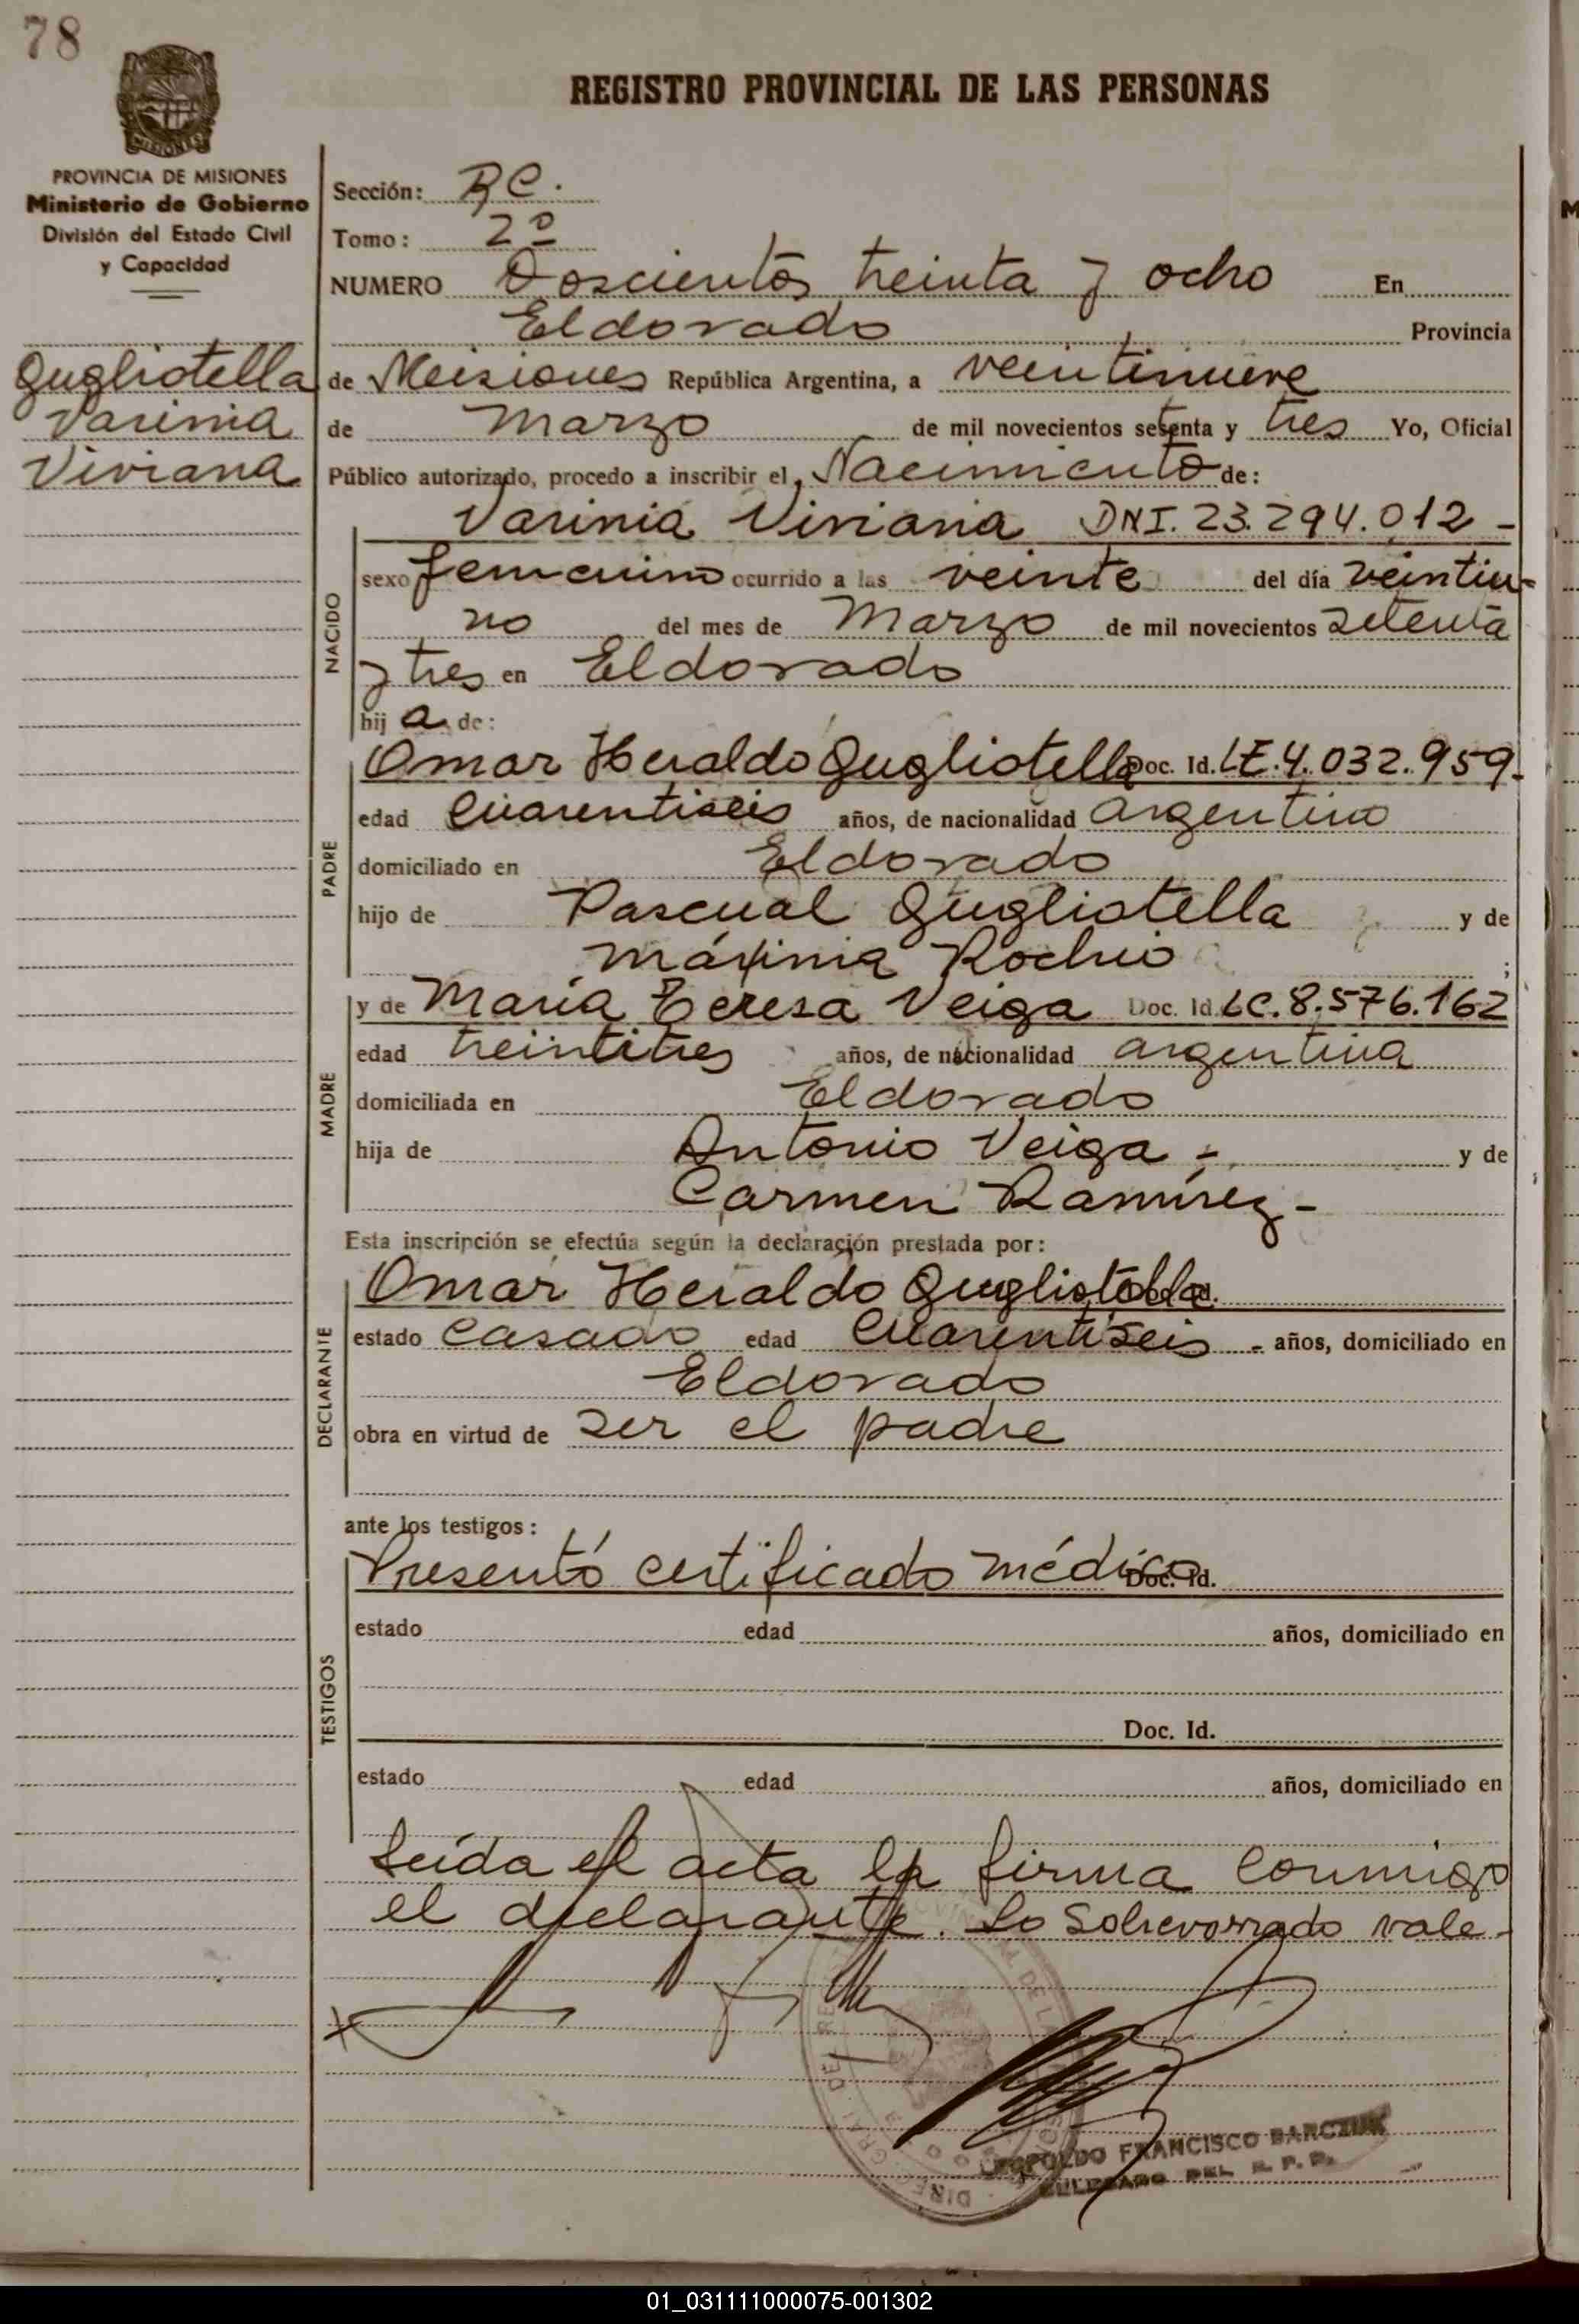 78
REGISTRO PROVINCIAL DE LAS PERSONAS
MISIONES
PROVINCIA DE MISIONES
Ministerio de Gobierno
División del Estado Civil
y Capacidad
Gugliotella
Varinia
Viviana
Sección: RC.
Tomo: 2º
NUMERO Doscientos treinta y ocho En
Eldorado Provincia
de Misiones República Argentina, a veintinueve
de Marzo de mil novecientos setenta y tres Yo, Oficial
Público autorizado, procedo a inscribir el Nacimiento de:
NACIDO
Varinia Viviana DNI. 23.294.012 -
sexo femenino ocurrido a las veinte del día veintiu-
no del mes de Marzo de mil novecientos setenta
y tres en Eldorado
hij a de:
PADRE
Omar Heraldo Gugliotella Doc. Id. LE. 4.032.959-
edad cuarentiseis años, de nacionalidad argentino
domiciliado en Eldorado
hijo de Pascual Gugliotella y de
Máxima Rochio ;
MADRE
y de María Teresa Veiga Doc. Id. LC. 8.576.162
edad treintitres años, de nacionalidad argentina
domiciliada en Eldorado
hija de Antonio Veiga - y de
Carmen Ramírez -
Esta inscripción se efectúa según la declaración prestada por:
DECLARANTE
Omar Heraldo Gugliotella
estado casado edad cuarentiseis - años, domiciliado en
Eldorado
obra en virtud de ser el padre
ante los testigos:
TESTIGOS
Presentó certificado médico Doc. Id.
estado edad años, domiciliado en
Doc. Id.
estado edad años, domiciliado en
Leída el acta la firma conmigo
el declarante. Lo sobreborrado vale -
LEOPOLDO FRANCISCO BARCZUK
DELEGADO DEL R. P. P.
01_031111000075-001302